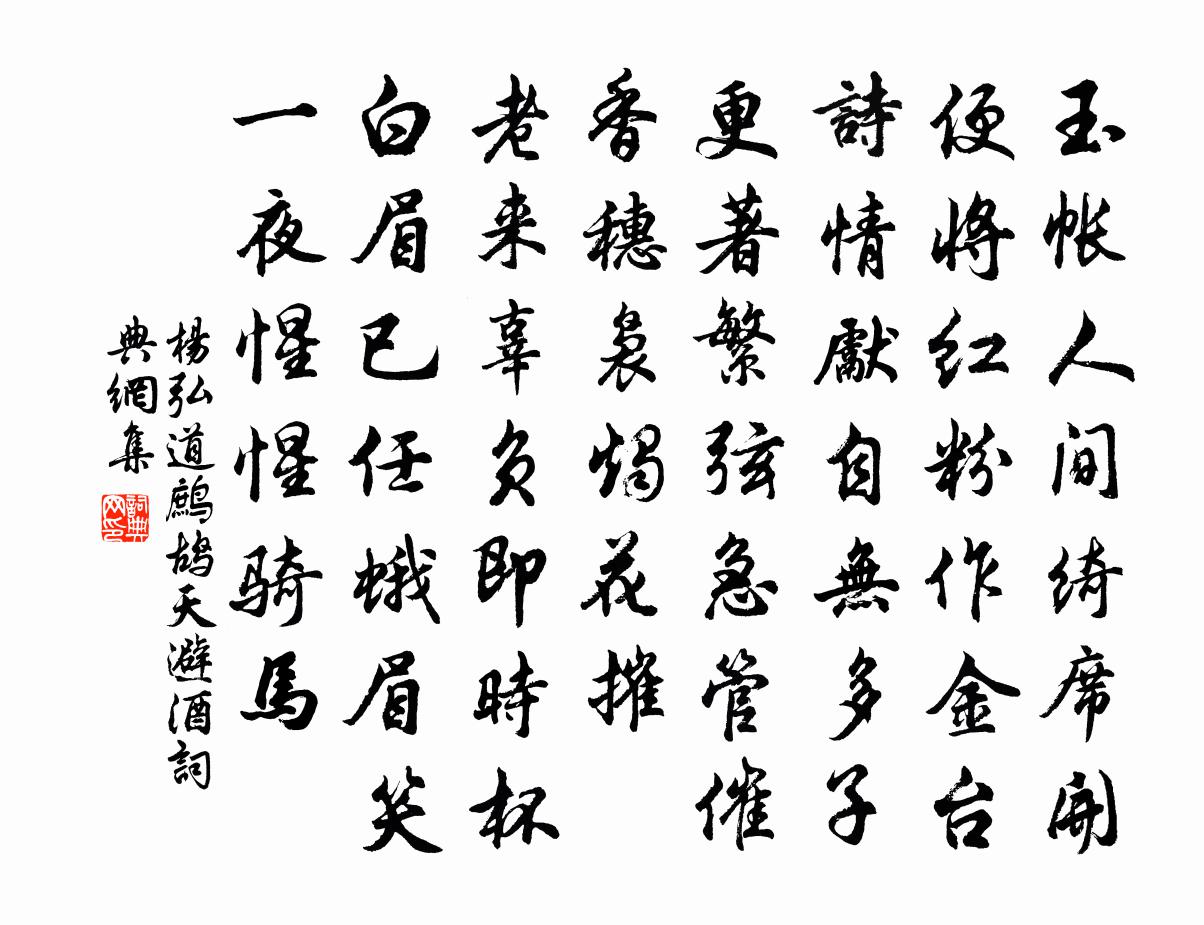 玉帐人间绮席開
便将红粉作金台
詩情獻自無多子
更著繁弦急管催
香穗裊燭花摧
老来辜负即時杯
白眉已任蛾眉笑
一夜惺惺骑馬
楊弘道鷓鴣天避酒詞
典網集
詞典
网印